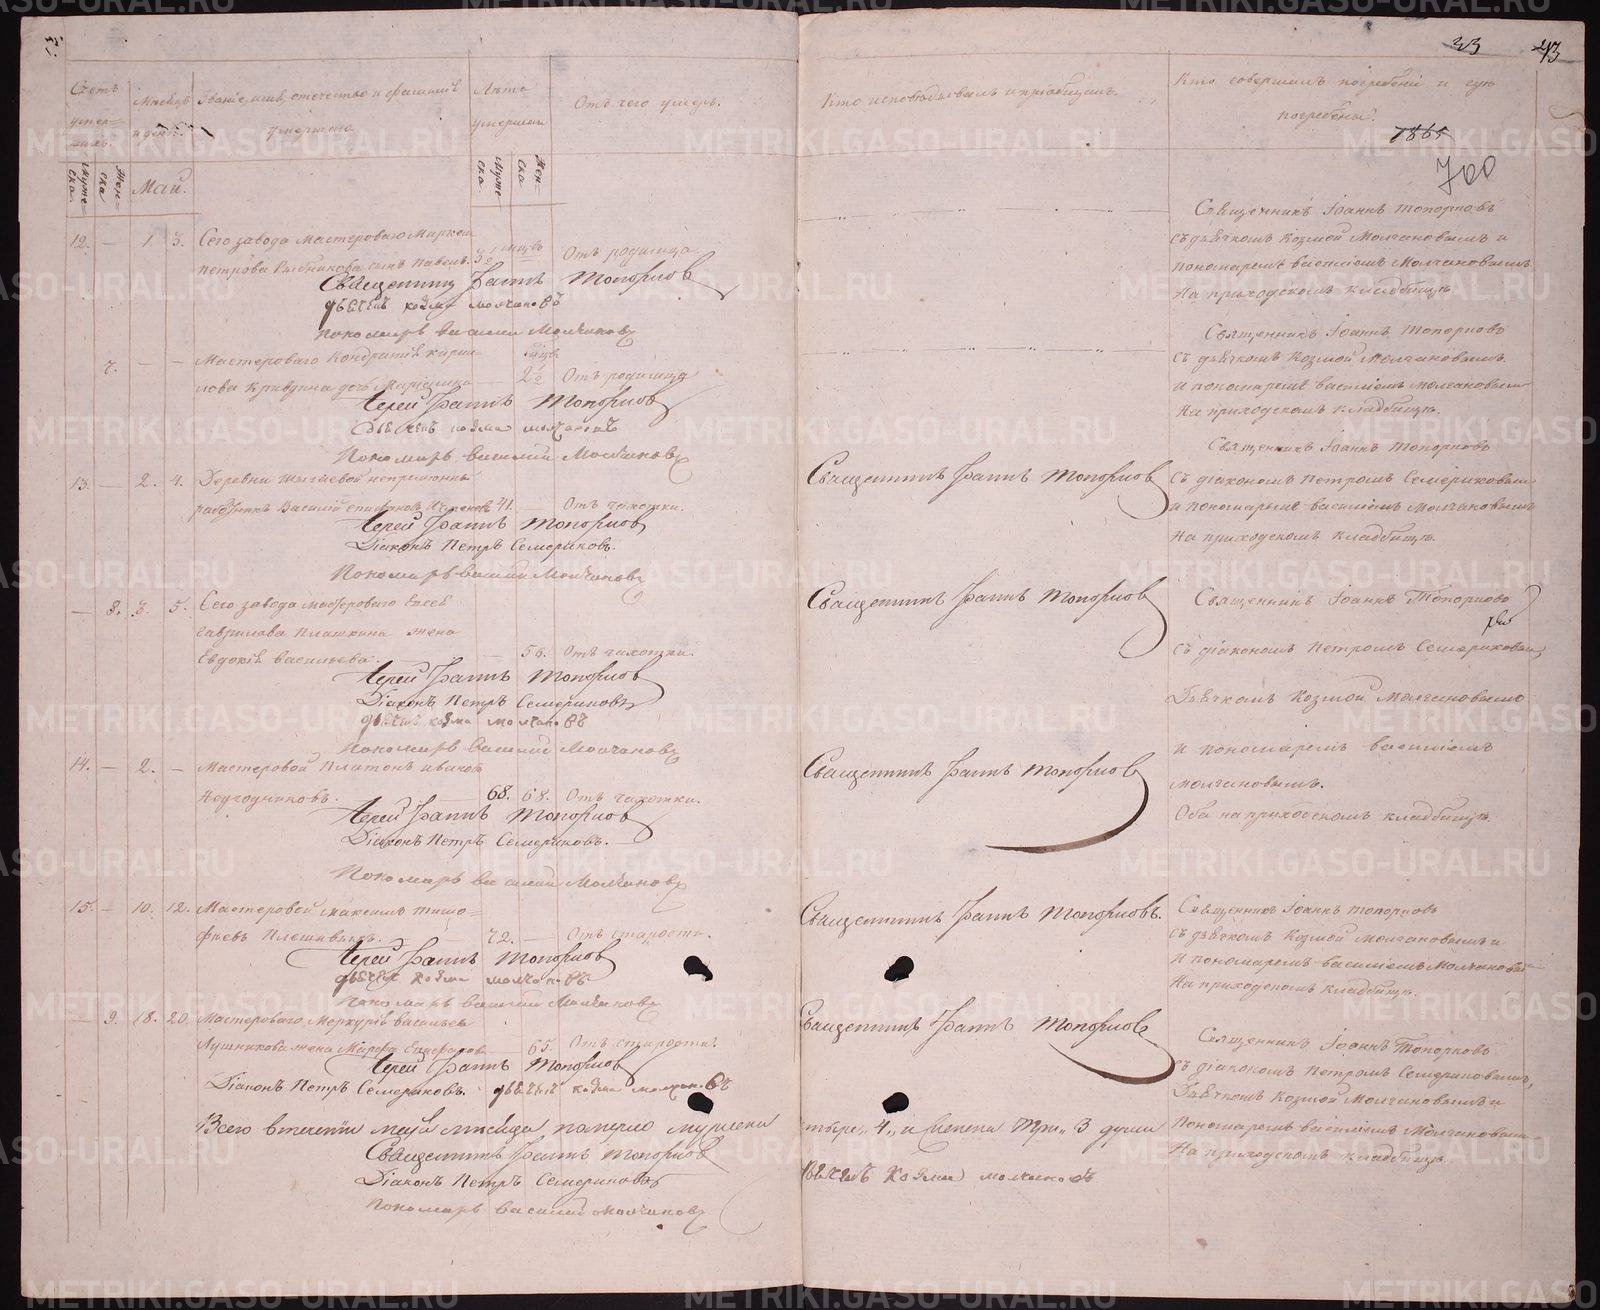 33
Счетъ умер-шихъ.
Мѣсяцъ и день.
Званіе, имя, отчество и фамилія умершаго.
Лѣта умершаго
Отъ чего умеръ.
Кто исповѣдывалъ и пріобщалъ.
Кто совершалъ погребеніе и гдѣ погребены.
1865
700
Муже-ска.
Жен-ска
Май.
Муже ска.
Жен-ска
12. — 1 3. Сего завода Мастероваго
Петрова Рыбникова сынъ Павелъ. Отъ родимца
Священникъ Іоаннъ Топорковъ
дьячекъ козма молчановъ
Пономарь Василий Молчановъ
Священникъ Іоаннъ Топорковъ
съ дьячкомъ Козмой Молчановымъ и
пономаремъ Василіемъ Молчановымъ
На приходскомъ кладбищѣ.
7. — — Мастероваго Кондратія Кирил-
лова дочь Отъ родимца
Іерей Іоаннъ Топорковъ
дьячекъ козма молчановъ
Пономарь Василий Молчановъ
Священникъ Іоаннъ Топорковъ
съ дьячкомъ Козмой Молчановымъ
и пономаремъ Василіемъ Молчановымъ
На приходскомъ кладбищѣ.
13. — 2. 4. Деревни
Василій 41. — Отъ чахотки.
Іерей Іоаннъ Топорковъ
Діаконъ Петръ Семериковъ.
Пономарь Василий Молчановъ
Священникъ Іоаннъ Топорковъ
Священникъ Іоаннъ Топорковъ
съ діакономъ Петромъ Семериковымъ
и пономаремъ Василіемъ Молчановымъ
На приходскомъ кладбищѣ.
— 8. 3. 5. Сего завода мастероваго
Гаврилова Плашкина жена
Евдокія Васильева. — Отъ чахотки.
Іерей Іоаннъ Топорковъ
Діаконъ Петръ Семериковъ
дьячекъ козма молчановъ
Пономарь Василий Молчановъ
Священникъ Іоаннъ Топорковъ
Священникъ Іоаннъ Топорковъ
съ діакономъ Петромъ Семериковымъ
Дьячкомъ Козмой Молчановымъ
и пономаремъ Василіемъ
Молчановымъ.
Оба на приходскомъ кладбищѣ.
14. — 2. — Мастеровой Платонъ Ивановъ
68. 68. Отъ чахотки.
Іерей Іоаннъ Топорковъ
Діаконъ Петръ Семериковъ.
Пономарь Василий Молчановъ
Священникъ Іоаннъ Топорковъ
15. — 10. 12. Мастеровой Максимъ Тимо-
феевъ 72. — Отъ старости.
Іерей Іоаннъ Топорковъ
дьячекъ козма молчановъ
Пономарь Василий Молчановъ
Священникъ Іоаннъ Топорковъ.
Священникъ Іоаннъ Топорковъ
съ дьячкомъ Козмой Молчановымъ и
и пономаремъ Василіемъ Молчановым
На приходскомъ кладбищѣ.
9. 18. 20. Мастероваго Меркурія Васильева
Лушникова жена — 65. Отъ старости.
Іерей Іоаннъ Топорковъ
Діаконъ Петръ Семериковъ. дьячекъ козма молчановъ
Священникъ Іоаннъ Топорковъ
Священникъ Іоаннъ Топорковъ
съ діакономъ Петромъ Семериковымъ,
Дьячкомъ Козмой Молчановымъ и
пономаремъ Василіемъ Молчановымъ.
На приходскомъ кладбищѣ.
Всего втеченіи мая мѣсяца померло мужеска четыре „4„ и женска три „3 души
Священникъ Іоаннъ Топорковъ
Діаконъ Петръ Семериковъ
дьячекъ козма молчановъ
Пономарь Василий Молчановъ
METRIKI.GASO-URAL.RU